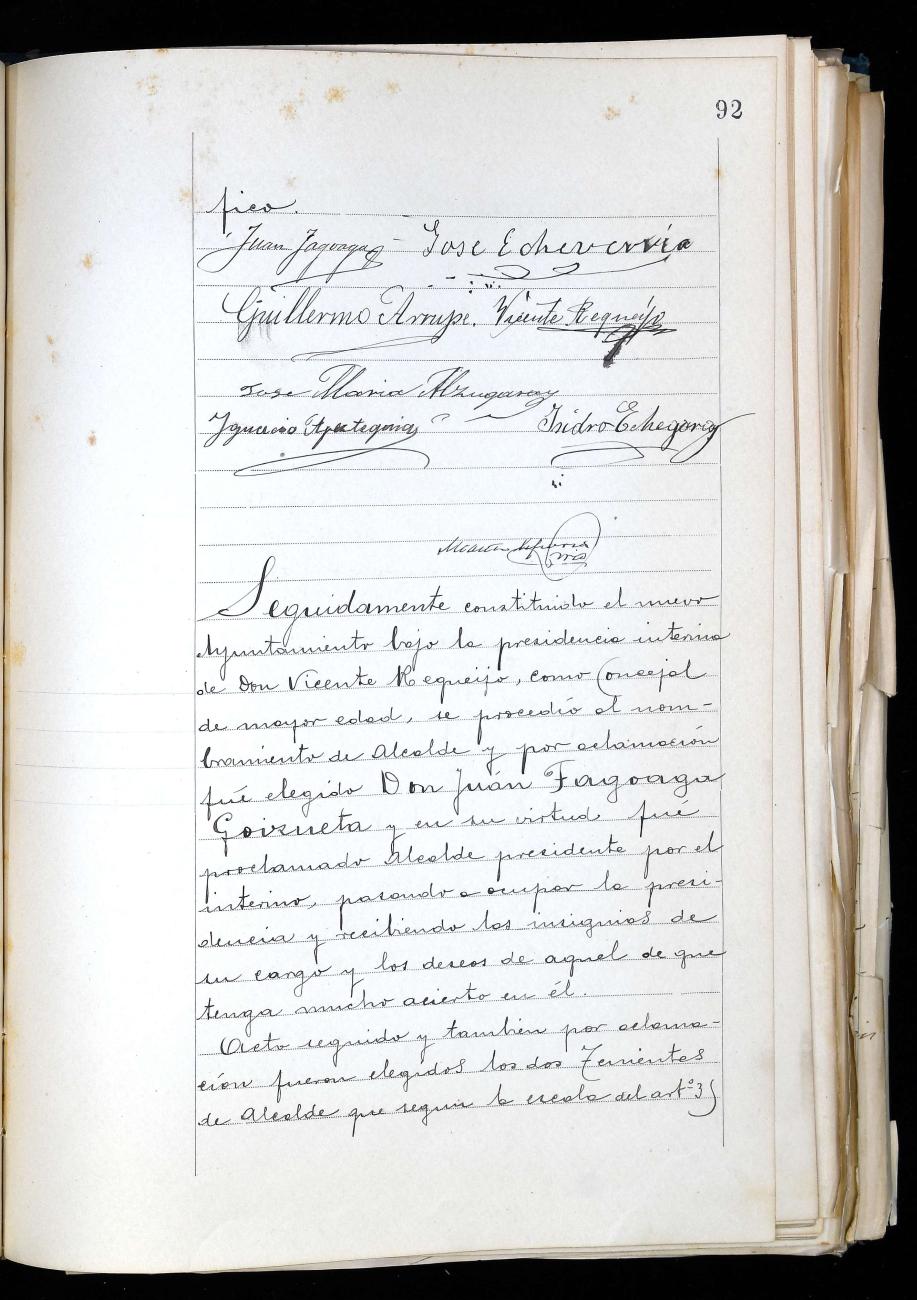 92
fico.
Juan Fagoaga Jose Echeverria
Guillermo Arrupe. Vicente Requeijo
Jose Maria Alzugaray
Ygnacio Apeztegui Isidro Echegaray
Seguidamente constituido el nuevo
Ayuntamiento bajo la presidencia interina
de Don Vicente Requeijo, como Concejal
de mayor edad, se procedió al nom-
bramiento de Alcalde y por aclamación
fué elegido Don Juán Fagoaga
Goizueta y en su virtud fué
proclamado Alcalde presidente por el
interino, pasando a ocupar la presi-
dencia y recibiendo las insignias de
su cargo y los deseos de aquel de que
tenga mucho acierto en él.
Acto seguido y tambien por aclama-
ción fueron elegidos los dos Tenientes
de Alcalde que segun la escala del artº 35